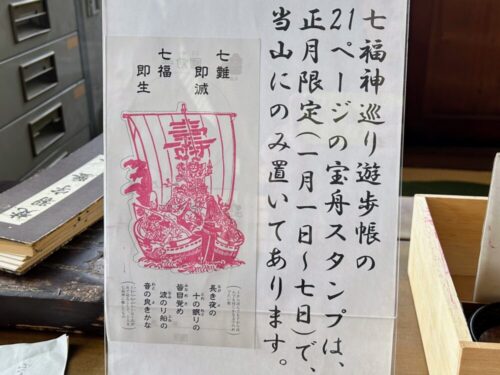 七福神巡り遊歩帳の
21ページの宝舟スタンプは、
正月限定(一月一日〜七日)で、
当山にのみ置いてあります。
七難
即滅
七福
即生
壽
長き夜の
十の眠りの
皆目覚め
波のり船の
音の良きかな